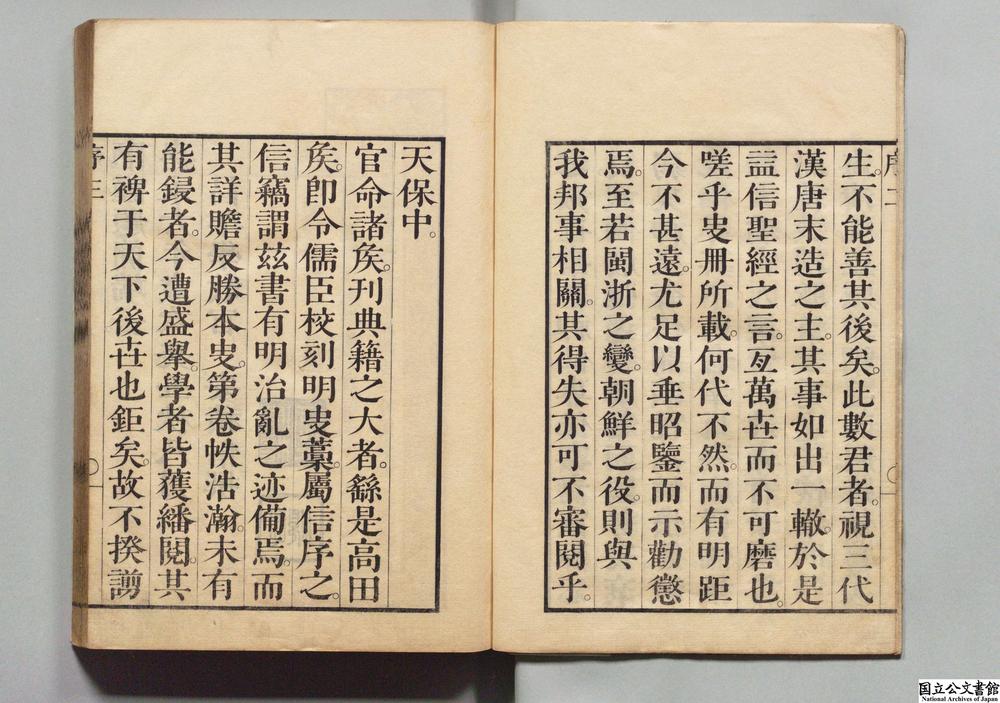 序二
生。不能善其後矣。此數君者。視三代
漢唐末造之主。其事如出一轍。於是
益信聖經之言。亙萬世而不可磨也。
嗟乎史冊所載。何代不然。而有明距
今不甚遠。尤足以垂昭鑒而示勸懲
焉。至若閩浙之變。朝鮮之役。則與
我邦事相關。其得失亦可不審閱乎。
天保中。
官命諸矦。刊典籍之大者。繇是高田
矦。即令儒臣校刻明史藁。屬信序之。
信竊謂玆書有明治亂之迹備焉。而
其詳贍反勝本史。第卷帙浩瀚。未有
能鋟者。今遭盛舉。學者皆獲繙閱。其
有裨于天下後世也鉅矣。故不揆謭
序三
国立公文書館
National Archives of Japan